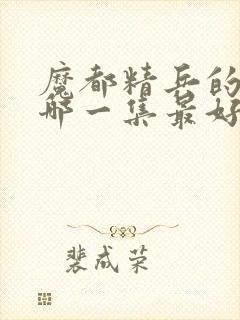 魔都精兵的
哪一集最好
裴成荣